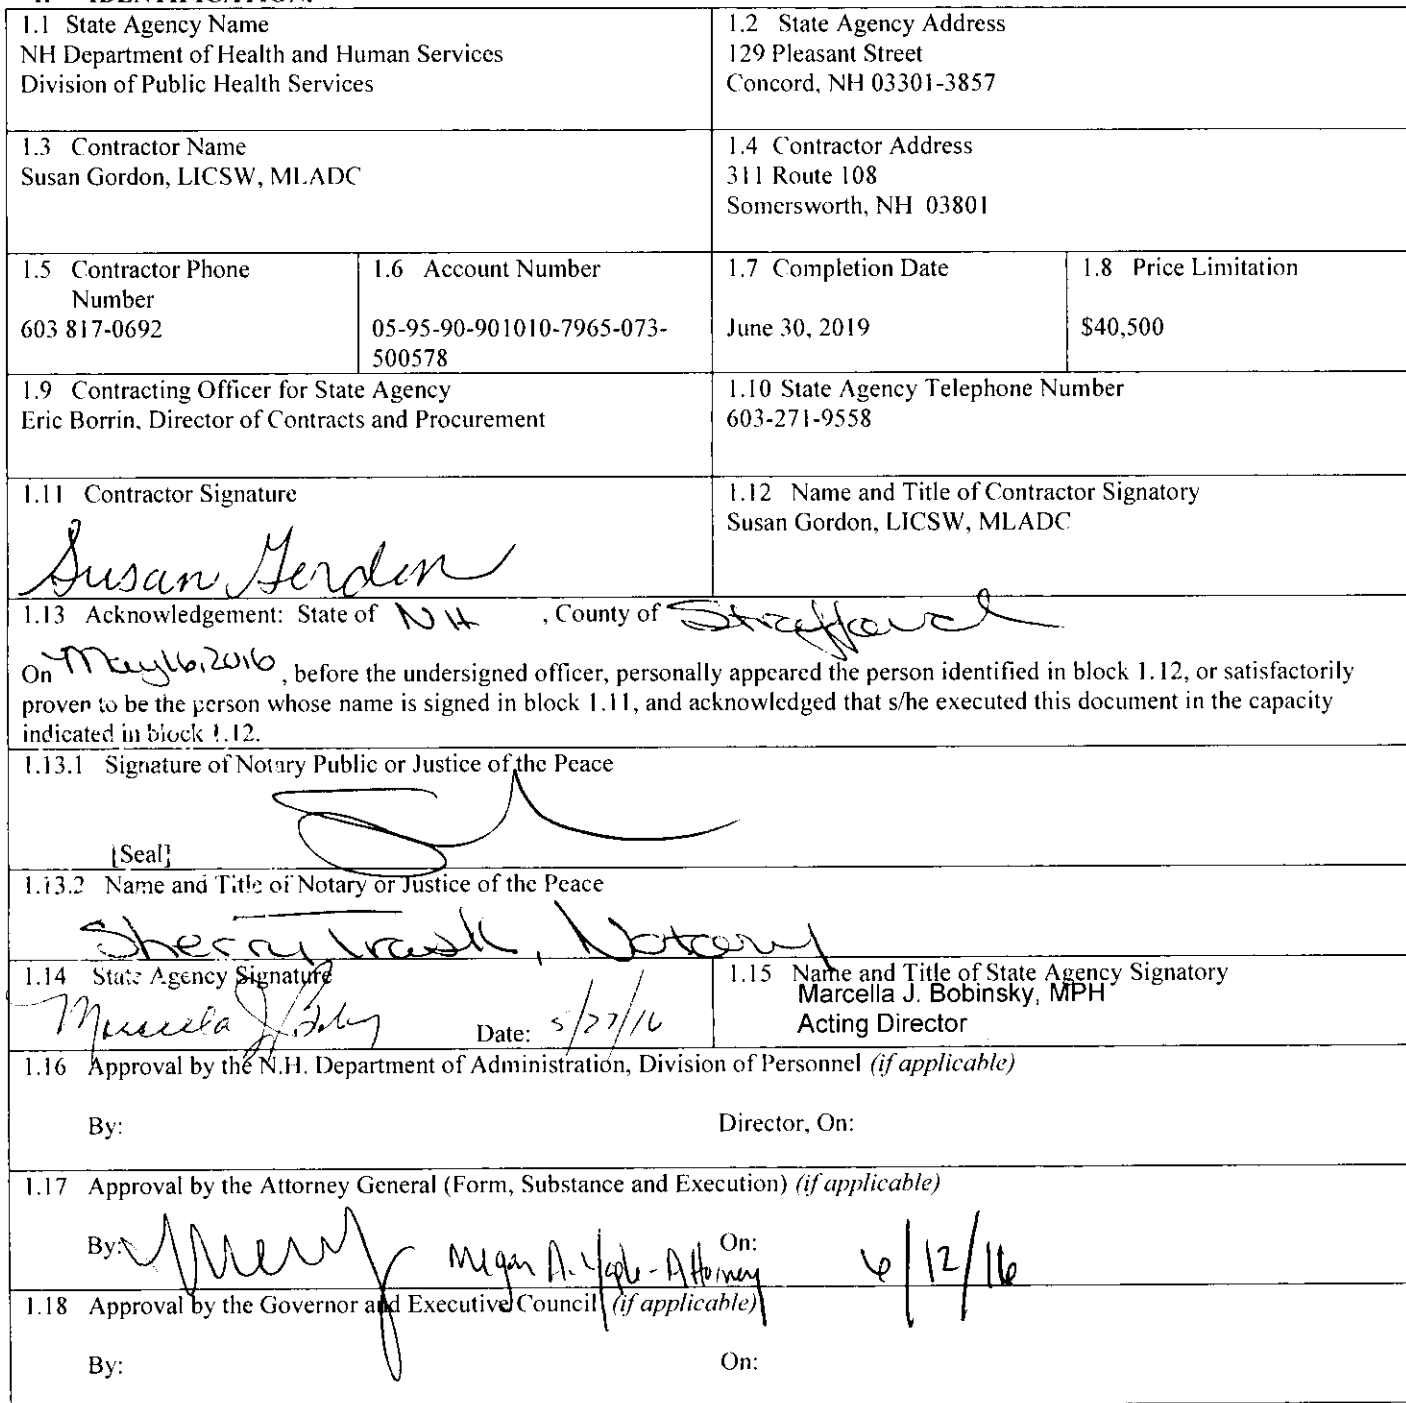 1. IDENTIFICATION.
1.1 State Agency Name
NH Department of Health and Human Services
Division of Public Health Services
1.2 State Agency Address
129 Pleasant Street
Concord, NH 03301-3857
1.3 Contractor Name
Susan Gordon, LICSW, MLADC
1.4 Contractor Address
311 Route 108
Somersworth, NH 03801
1.5 Contractor Phone
Number
603 817-0692
1.6 Account Number
05-95-90-901010-7965-073-
500578
1.7 Completion Date
June 30, 2019
1.8 Price Limitation
$40,500
1.9 Contracting Officer for State Agency
Eric Borrin, Director of Contracts and Procurement
1.10 State Agency Telephone Number
603-271-9558
1.11 Contractor Signature
Susan Gordon
1.12 Name and Title of Contractor Signatory
Susan Gordon, LICSW, MLADC
1.13 Acknowledgement: State of NH , County of Strafford
On May 16, 2016 , before the undersigned officer, personally appeared the person identified in block 1.12, or satisfactorily
proven to be the person whose name is signed in block 1.11, and acknowledged that s/he executed this document in the capacity
indicated in block 1.12.
1.13.1 Signature of Notary Public or Justice of the Peace
[Seal]
1.13.2 Name and Title of Notary or Justice of the Peace
Sherry Trask, Notary
1.14 State Agency Signature
Date: 5/27/16
1.15 Name and Title of State Agency Signatory
Marcella J. Bobinsky, MPH
Acting Director
1.16 Approval by the N.H. Department of Administration, Division of Personnel (if applicable)
By: Director, On:
1.17 Approval by the Attorney General (Form, Substance and Execution) (if applicable)
By: Megan A. Yaple - Attorney On: 6/12/16
1.18 Approval by the Governor and Executive Council (if applicable)
By: On: